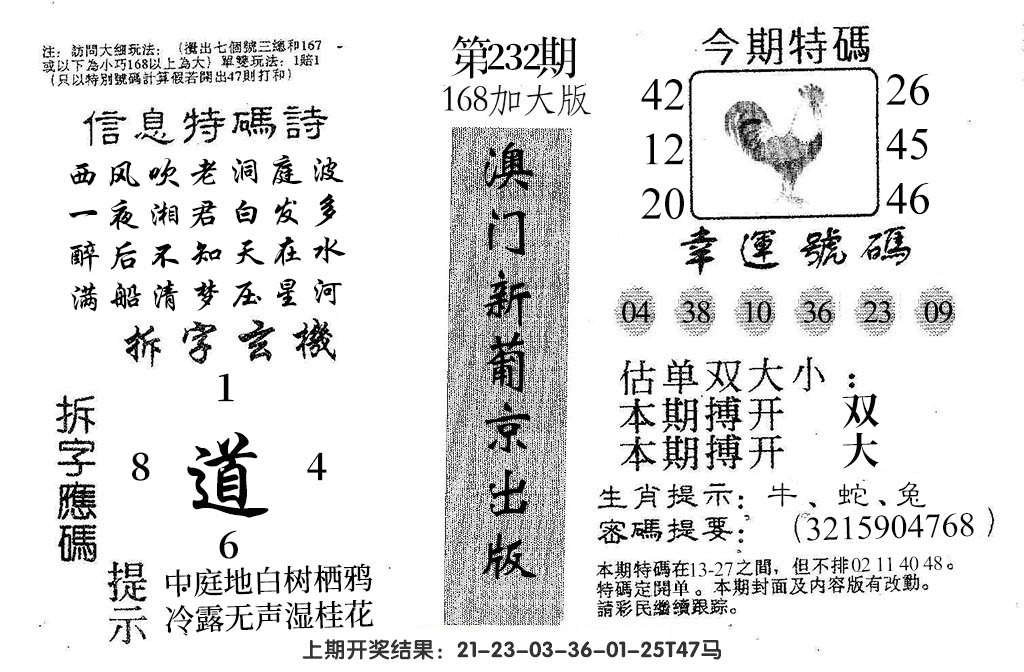 注：訪問大细玩法：（攪出七個號三總和167
或以下為小巧168以上為大）單雙玩法：1賠1
（只以特別號碼計算假若開出47則打和）
信息特碼詩
西风吹老洞庭波
一夜湘君白发多
醉后不知天在水
满船清梦压星河
拆字玄機
拆字應碼
1
8 道 4
6
提示
中庭地白树栖鸦
冷露无声湿桂花
第232期
168加大版
澳门新葡京出版
今期特碼
42 26
12 45
20 46
幸運號碼
04 38 10 36 23 09
估单双大小：
本期搏开 双
本期搏开 大
生肖提示：牛、蛇、兔
密碼提要：（3215904768）
本期特碼在13-27之間，但不排02 11 40 48。
特碼定開单。本期封面及内容版有改動。
請彩民繼續跟踪。
上期开奖结果：21-23-03-36-01-25T47马